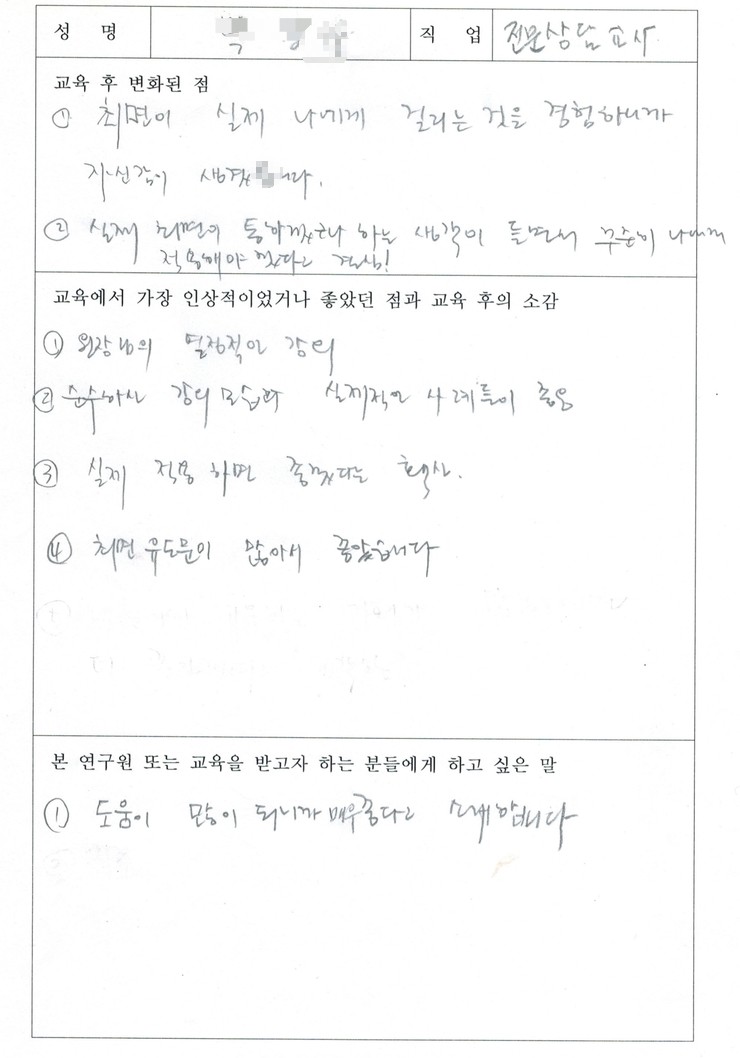 성 명 직 업 전문상담교사
교육 후 변화된 점
① 최면이 실제 나에게 걸리는 것을 경험하니까
자신감이 생겼니다.
② 실제 최면이 통하겠구나 하는 생각이 들면서 꾸준히 나에게
적용해야 겠다고 결심!
교육에서 가장 인상적이었거나 좋았던 점과 교육 후의 소감
① 원장님의 열정적인 강의
② 순수하신 강의 모습과 실제적인 사례들이 좋음
③ 실제 적용하면 좋겠다는 확신.
④ 최면 유도문이 많아서 좋았습니다
본 연구원 또는 교육을 받고자 하는 분들에게 하고 싶은 말
① 도움이 많이 되니까 매우좋다고 소개합니다